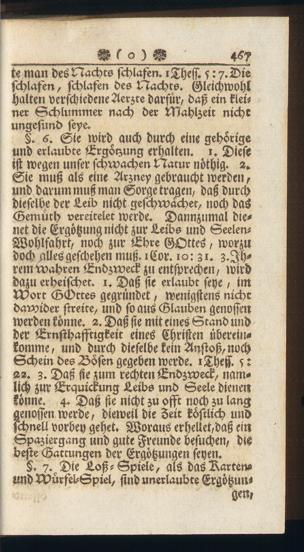 ( 0 ) 467
te man des Nachts schlafen. 1 Thess. 5:7. Die
schlafen, schlafen des Nachts. Gleichwohl
halten verschiedene Aerzte darfür, daß ein klei-
ner Schlummer nach der Mahlzeit nicht
ungesund seye.
§. 6. Sie wird auch durch eine gehörige
und erlaubte Ergötzung erhalten. 1. Diese
ist wegen unser schwachen Natur nöthig. 2.
Sie muß als eine Arzney gebraucht werden,
und darum muß man Sorge tragen, daß durch
dieselbe der Leib nicht geschwächet, noch das
Gemüth vereitelet werde. Dannzumal die-
net die Ergötzung nicht zur Leibs und Seelen-
Wohlfahrt, noch zur Ehre GOttes, worzu
doch alles geschehen muß. 1 Cor. 10: 31. 3. Jh-
rem wahren Endzweck zu entsprechen, wird
dazu erheischet. 1. Daß sie erlaubt seye, im
Wort GOttes gegründet, wenigstens nicht
dawider streite, und so aus Glauben genossen
werden könne. 2. Daß sie mit eines Stand und
der Ernsthafftigkeit eines Christen überein-
komme, und durch dieselbe kein Anstoß, noch
Schein des Bösen gegeben werde. 1 Thess. 5:
22. 3. Daß sie zum rechten Endzweck, nam-
lich zur Erquickung Leibs und Seele dienen
könne. 4. Daß sie nicht zu offt noch zu lang
genossen werde, dieweil die Zeit köstlich und
schnell vorbey gehet. Woraus erhellet, daß ein
Spaziergang und gute Freunde besuchen, die
beste Gattungen der Ergötzungen seyen.
§. 7. Die Loß-Spiele, als das Karten-
und Würfel-Spiel, sind unerlaubte Ergötzun-
gen,